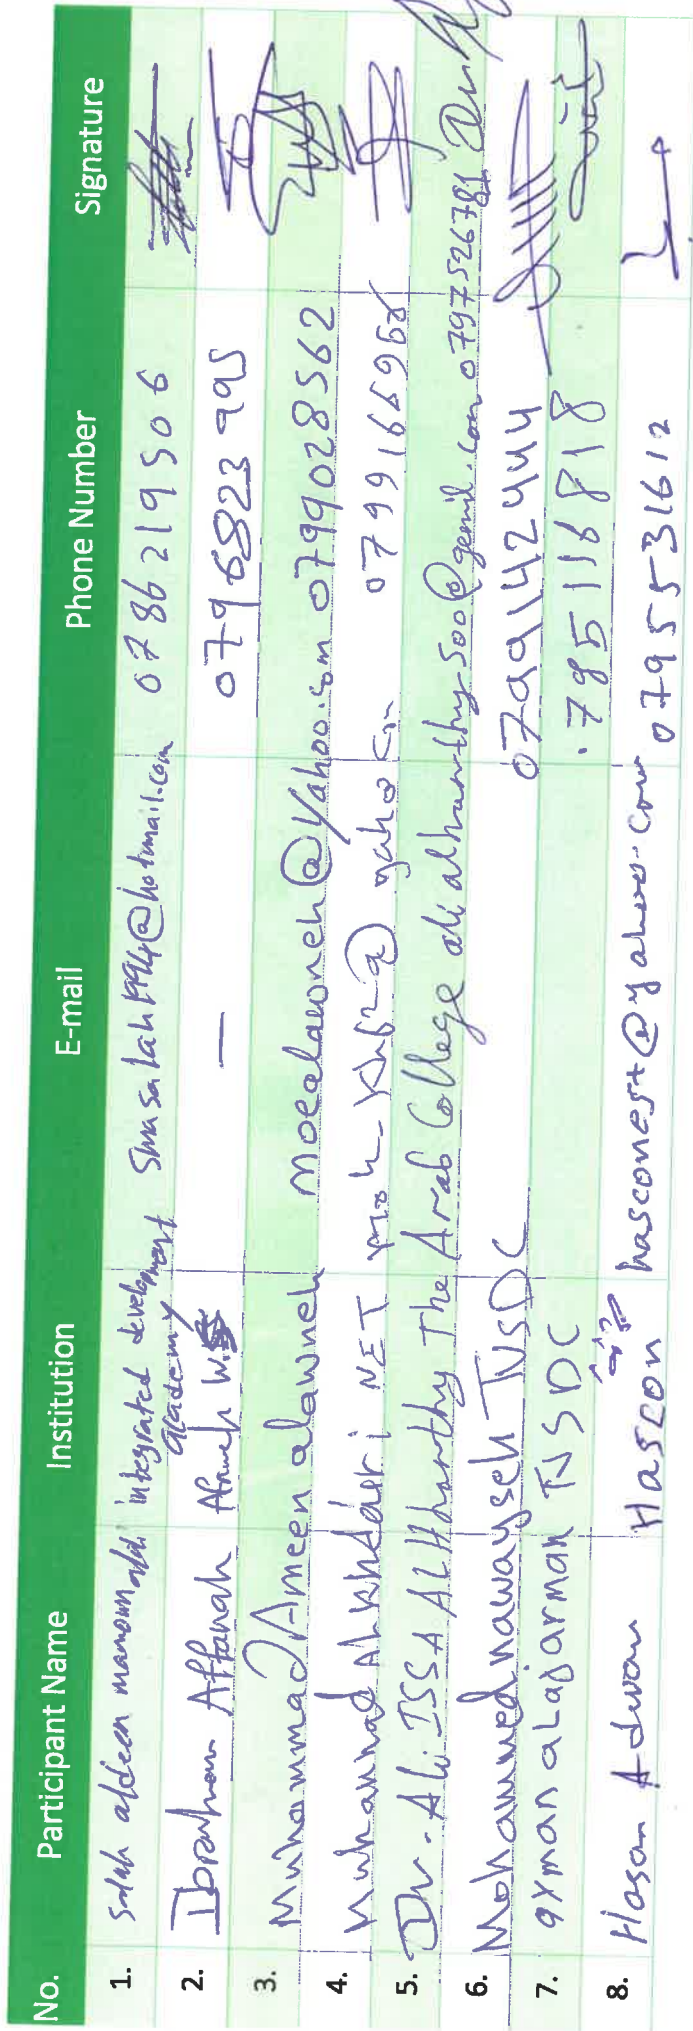 No. Participant Name Institution E-mail Phone Number Signature
1. Salah aldeen integrated development academy Smasalah1994@hotmail.com 0786219506
2. Ibrahim Affanah — 0796823995
3. Muhammad Ameen alawneh moealawneh@yahoo.com 0799028562
4. Muhannad Alkhdairi NET
5. Dr. Ali ISSA ALHarthy The Arab College 0797526781
6. Mohammed nawayseh TVSDC 0799142444
7. ayman alajarmah TVSDC .785116818
8. Hasan Adwan Hascon hasconest@yahoo.com 0795531612